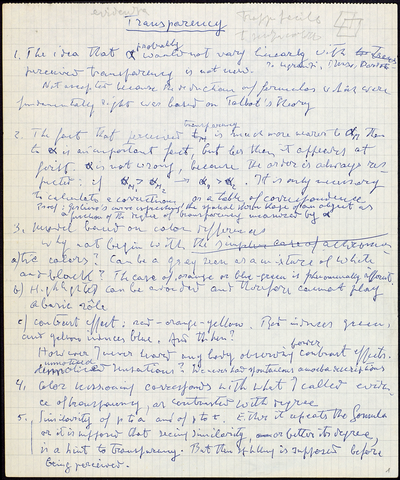 evidenza
Transparency
probably
1. The idea that α would not vary linearly with
perceived transparency is not new.
Not accepted because the deduction of formulas which were
fundamentally right was based on Talbot's theory
transparency
2. The fact that perceived is much more nearer to than
to α is an important fact, but less than it appears at
first. α is not wrong, because the order is always res-
pected: if It is only necessary
to calculate a correction, or a table of correspondence
as a function of the degree of transparency measured by α
3. Model based on color differences
Why not begin with the simplest case of achroma-
a) tic colors? Can a gray seen as a mixture of white
and black? The case of orange or blue-green is phenomenally different
b) Highlights can be avoided and therefore cannot play
a basic rôle
c) contrast effect: red-orange-yellow. Red induces green,
and yellow induces blue. And then?
However I never heard any body observing contrast effects.
unnoticed sensations? We never had spontaneous contrast
4. Color scissioning corresponds with what I called evid-
ce of transparency, as contrasted with degree
5. Similarity of p to a and of q to Either it repeats the formula
or it is supposed that seeing similarity, or better its degree,
is a hint to transparency. But then splitting is supposed before
being perceived.